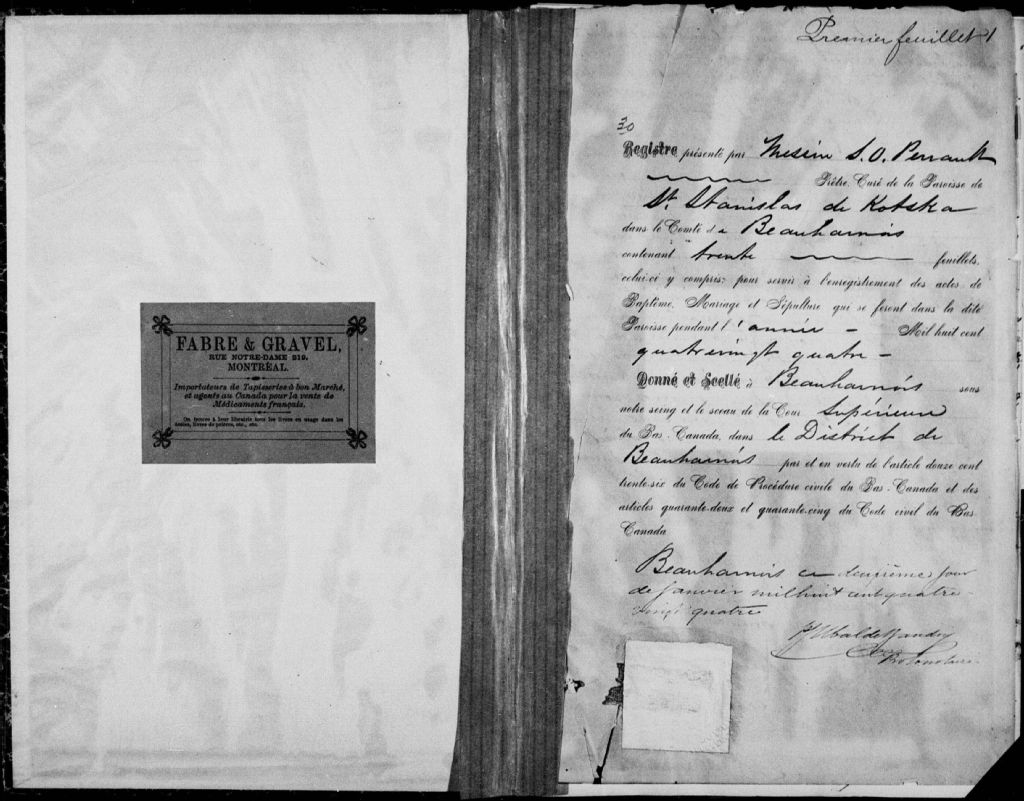 FABRE & GRAVEL,
RUE NOTRE-DAME 219.
MONTRÉAL.
Importateurs de Tapisseries à bon Marché,
et agents au Canada pour la vente de
Médicaments français.
On trouve à leur librairie tous les livres en usage dans les
écoles, livres de prières, etc., etc.
Premier feuillet 1
30
Registre présenté par Messire S. O. Perrault
Prêtre, Curé de la Paroisse de
St. Stanislas de Kotska
dans le Comté de Beauharnois
contenant trente feuillets,
celui-ci y compris, pour servir à l'enregistrement des actes de
Baptême, Mariage et Sépulture qui se feront dans la dite
Paroisse pendant l'année - Mil huit cent
quatrevingt quatre -
Donné et Scellé à Beauharnois sous
notre seing et le sceau de la Cour Supérieure
du Bas-Canada, dans le District de
Beauharnois par et en vertu de l'article douze cent
trente-six du Code de Procédure civile du Bas-Canada et des
articles quarante-deux et quarante-cinq du Code civil du Bas
Canada
Beauharnois ce deuxième jour
de janvier mil huit cent quatre-
vingt quatre
Protonotaire